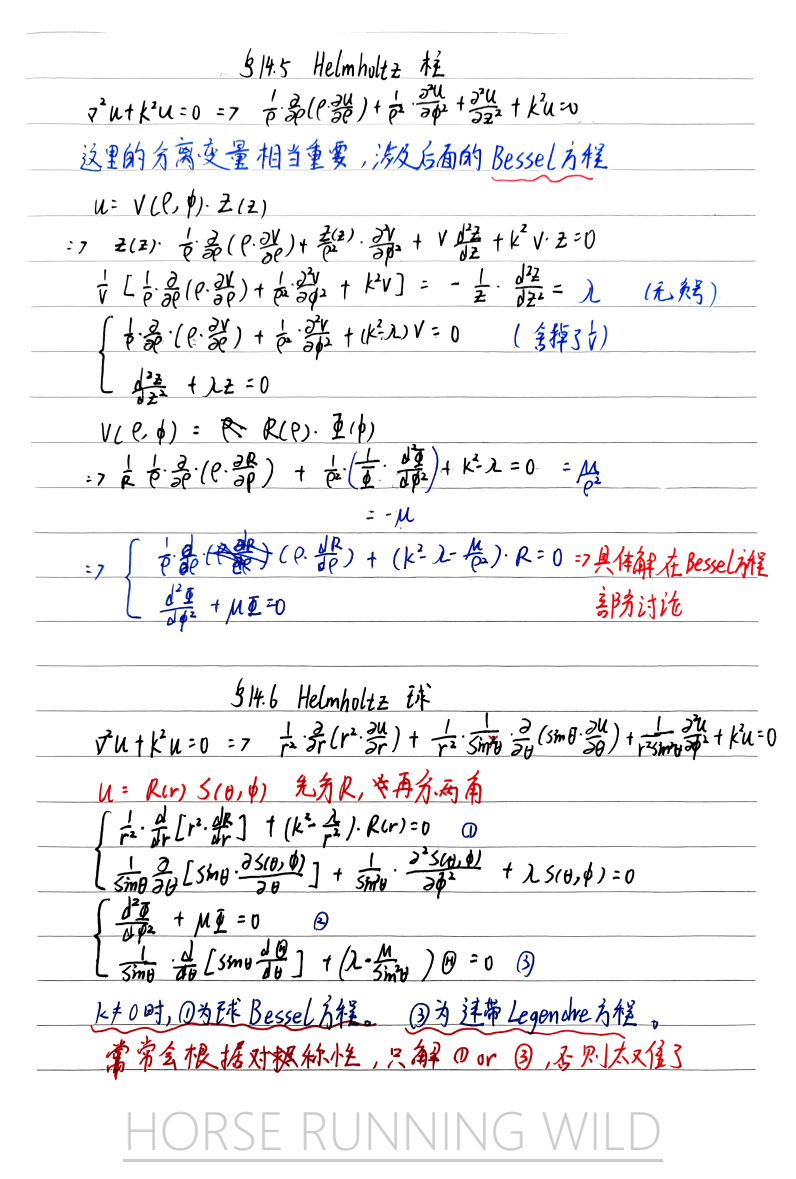 §14.5 Helmholtz 柱
∇²u+k²u=0 => 1/ρ·∂/∂ρ(ρ·∂u/∂ρ)+1/ρ²·∂²u/∂φ²+∂²u/∂z²+k²u=0
这里的分离变量相当重要,涉及后面的Bessel方程
u= V(ρ,φ)·Z(z)
=> Z(z)·1/ρ·∂/∂ρ(ρ·∂V/∂ρ)+Z(z)/ρ²·∂²V/∂φ²+V d²Z/dz+k²V·Z=0
1/V[1/ρ·∂/∂ρ(ρ·∂V/∂ρ)+1/ρ²·∂²V/∂φ²+k²V] = -1/Z·d²Z/dz² = λ (无负号)
{ 1/ρ·∂/∂ρ·(ρ·∂V/∂ρ)+1/ρ²·∂²V/∂φ²+(k²-λ)V=0 (舍掉了1/V)
d²Z/dz²+λZ=0
V(ρ,φ) = R(ρ)·Φ(φ)
=> 1/R 1/ρ·∂/∂ρ·(ρ·∂R/∂ρ) + 1/ρ²·(1/Φ·d²Φ/dφ²)+k²-λ=0 =μ/ρ²
=-μ
=> { 1/ρ·d/dρ(ρ·dR/dρ)+(k²-λ-μ/ρ²)·R=0 =>具体解在Bessel方程
d²Φ/dφ²+μΦ=0 部分讨论
§14.6 Helmholtz 球
∇²u+k²u=0 => 1/r²·∂/∂r(r²·∂u/∂r)+1/r²·1/sinθ·∂/∂θ(sinθ·∂u/∂θ)+1/r²sin²θ ∂²u/∂φ²+k²u=0
u= R(r) S(θ,φ) 先分R,再分两角
{ 1/r²·d/dr[r²·dR/dr]+(k²-λ/r²)·R(r)=0 ①
1/sinθ ∂/∂θ[sinθ·∂S(θ,φ)/∂θ]+1/sin²θ·∂²S(θ,φ)/∂φ²+λS(θ,φ)=0
{ d²Φ/dφ²+μΦ=0 ②
1/sinθ·d/dθ[sinθ dΘ/dθ]+(λ-μ/sin²θ)Θ=0 ③
k≠0时,①为球Bessel方程。 ③为连带Legendre方程。
常常会根据对称性,只解①or③,否则太难了
HORSE RUNNING WILD